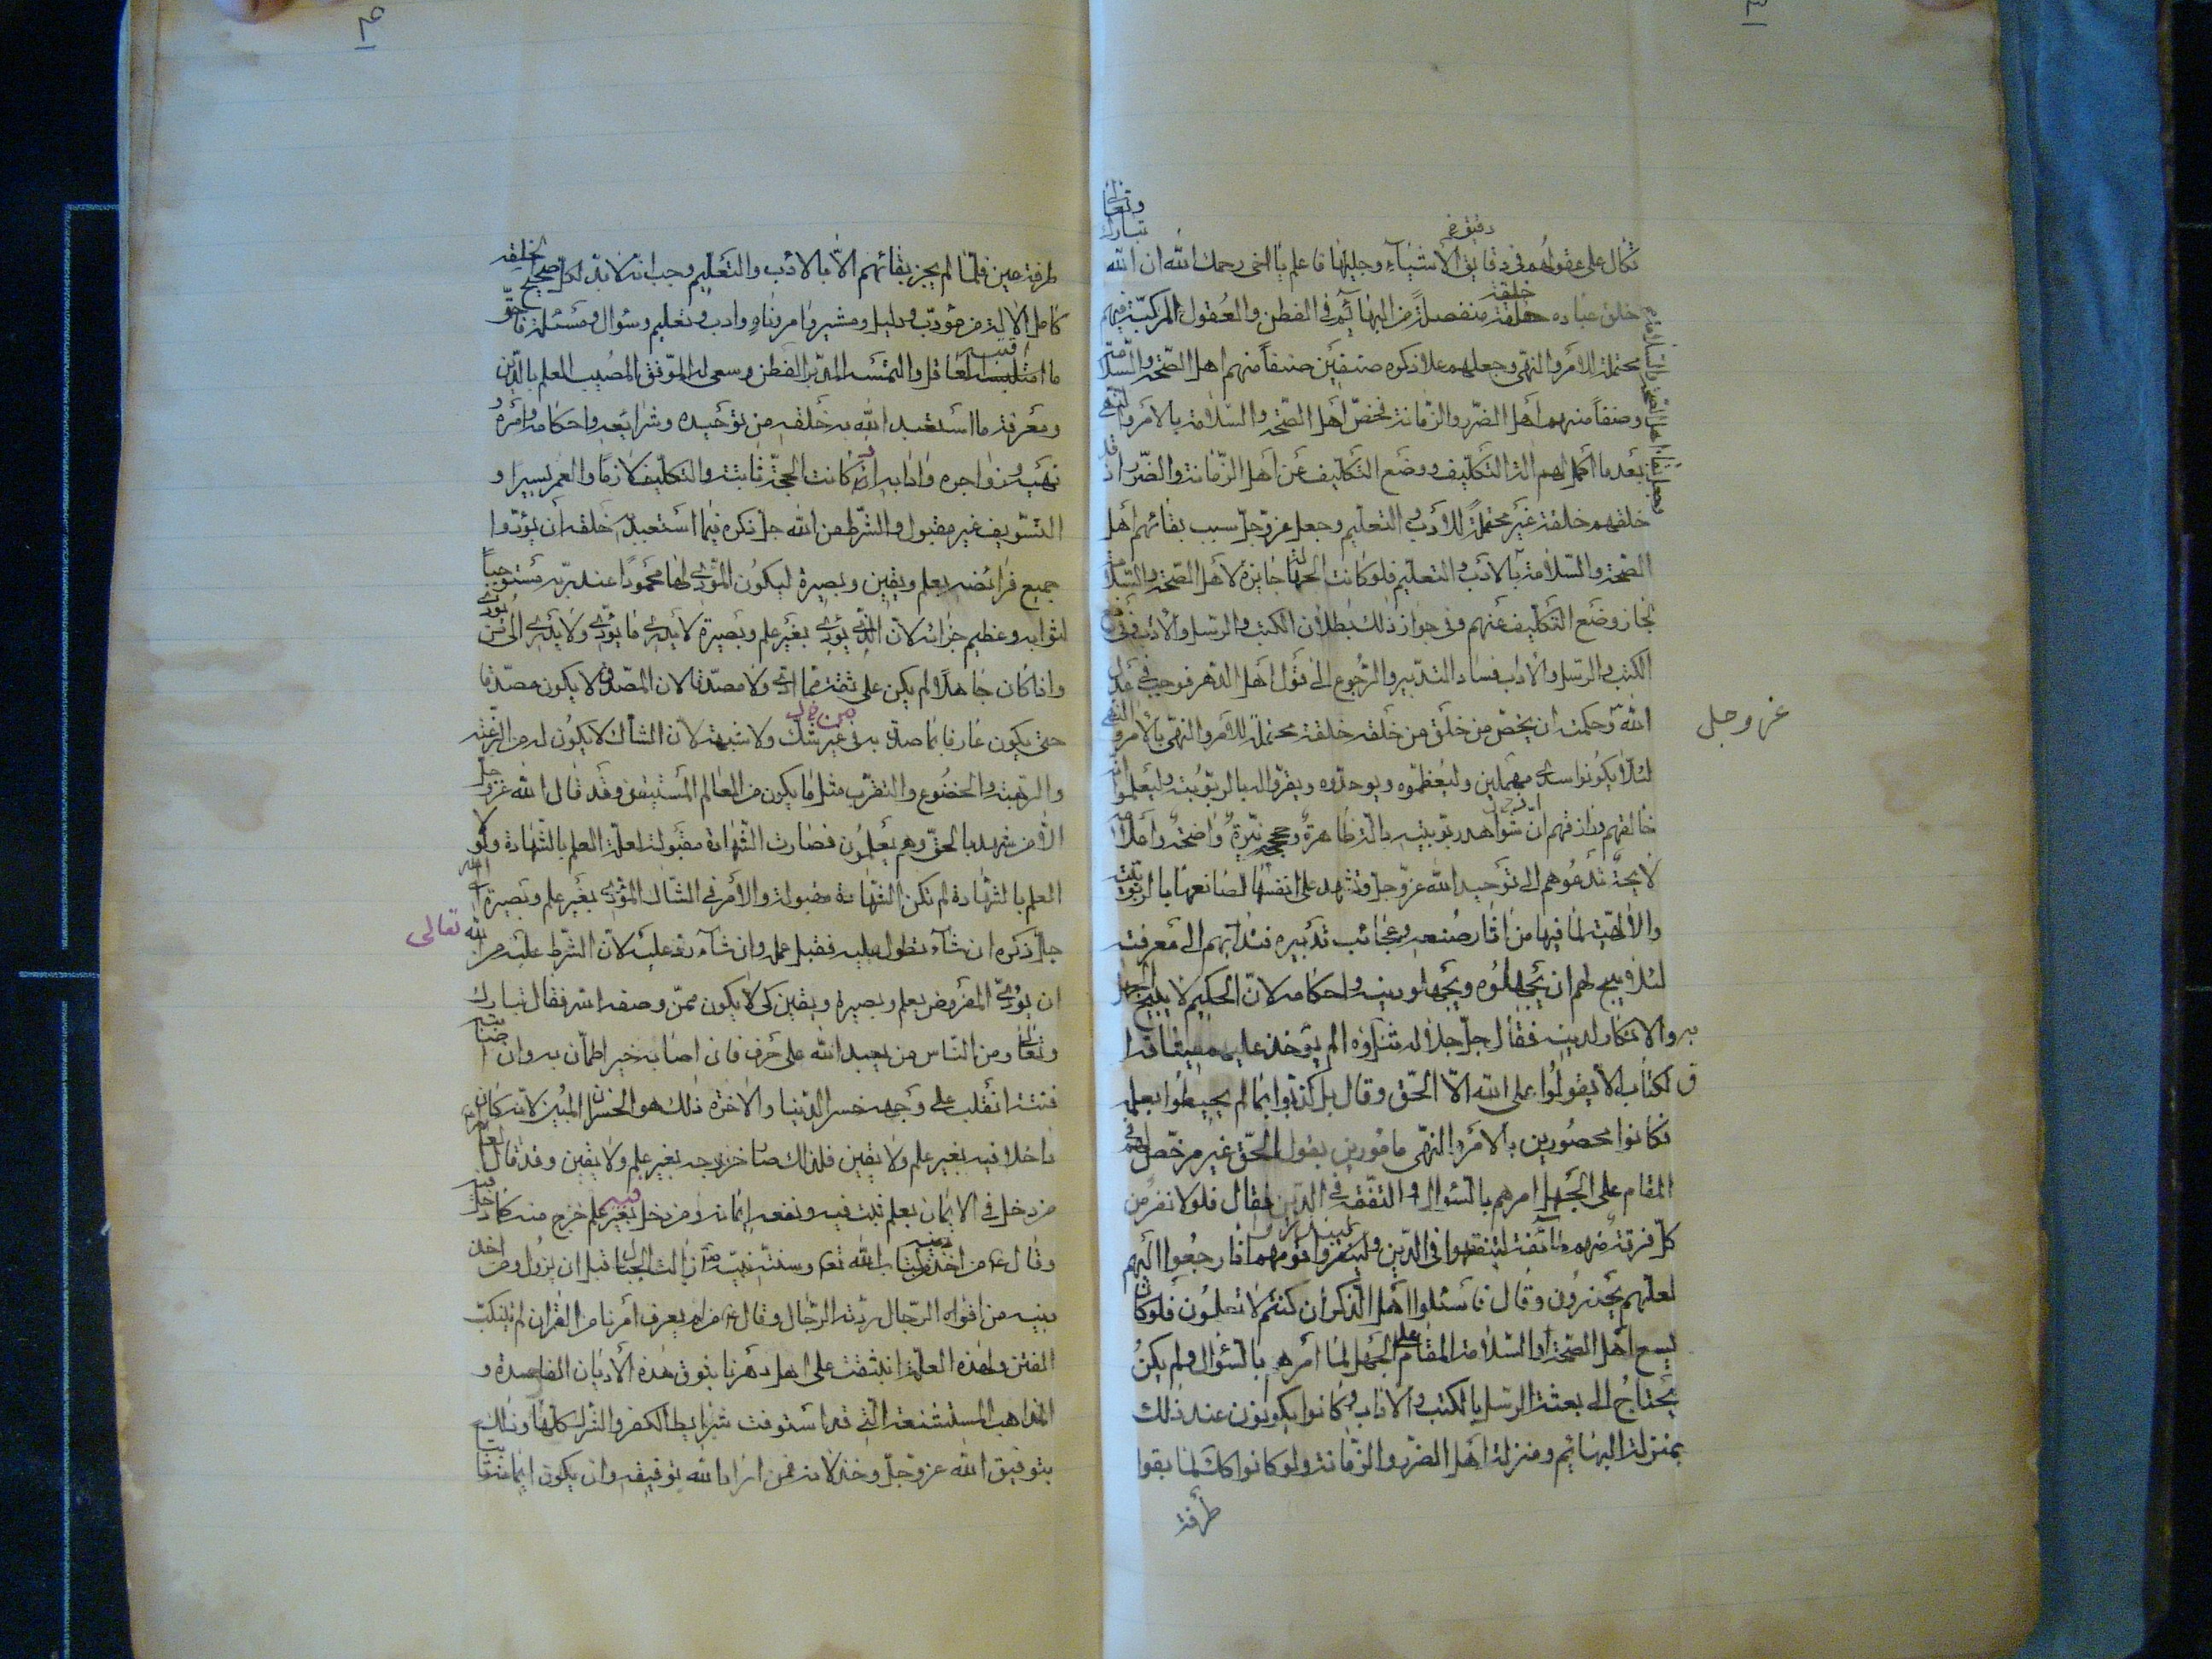 وتعالى
تبارك
دقيق خ
تكال على عقولهم في دقايق الاشياء وجليلها فاعلم يا اخي رحمك الله ان الله
خلق عباده خلقة منفصلة من البهائم في الفطن والعقول المركبة فيهم
محتملة للامر والنهي وجعلهم جل ذكره صنفين صنفاً منهم اهل الصحة والسلامة
وصنفاً منهم اهل الضرر والزمانة فخص اهل الصحة والسلامة بالامر والنهي
بعد ما اكمل لهم الة التكليف ووضع التكليف عن اهل الزمانة والضرر اذ قد
خلقهم خلقة غير محتملة للادب و التعليم وجعل عز وجل سبب بقائهم اهل
الصحة والسلامة وجعل بقاء اهل الصحة والسلامة
الصحة والسلامة بالادب و التعليم فلو كانت الجهالة جايزة لاهل الصحة والسلامة
لجاز وضع التكليف عنهم وفي جواز ذلك بطلان الكتب والرسل والاداب وفي رفع
الكتب و الرسل والاداب فساد التدبير والرجوع الى قول اهل الدهر فوجب في عدل
الله وحكمته ان يخص من خلق من خلقه خلقة محتملة للامر والنهي بالامر والنهي
عز وجل
لئلا يكونوا سدى مهملين وليعظموه ويوحدوه ويقروا له بالربوبية وليعلموا انه
خالقهم ورازقهم ان شواهد ربوبيته دالة ظاهرة وحججه نيرة واضحة واعلامه
لايحة تدعوهم الى توحيد الله عز وجل وتشهد على انفسها لصانعها بالربوبية
والالهية لما فيها من اثار صنعه وعجائب تدبيره فندبهم الى معرفته
لئلا يبيح لهم ان يجهلوه ويجهلو دينه واحكامه لان الحكيم لا يبيح الجهل
به والانكار لدينه فقال جل جلاله ثناؤه الم يؤخذ عليهم ميثاق
الكتاب ان لا يقولوا على الله الا الحق وقال بل كذبوا بما لم يحيطوا بعلمه
فكانوا محصورين بالامر والنهي مامورين بقول الحق غير مرخص لهم في
المقام على الجهل امرهم بالسؤال و التفقه في الدين فقال فلولا نفر من
كل فرقة منهم طائفة ليتفقهوا في الدين ولينذروا قومهم اذا رجعوا اليهم
لعلهم يحذرون وقال فاسئلوا اهل الذكر ان كنتم لا تعلمون فلو كان
يسع اهل الصحة و السلامة المقام على الجهل لما امرهم بالسؤال ولم يكن
يحتاج الى بعثة الرسل بالكتب و الاداب وكانوا يكونون عند ذلك
بمنزلة البهائم ومنزلة اهل الضرر والزمانة ولو كانوا كك لما بقوا
طرفة
طرفة عين فلما لم يجز بقائهم الا بالادب والتعليم وجب انه لابد لكل صحيح الخلقة
كامل الالة من مؤدب ودليل ومشير وامر وناهٍ وادب وتعليم وسؤال ومسئلة فاحق
ما اقتبسه العاقل والتمسه المدبر الفطن وسعى له الموفق المصيب العلم بالدين
ومعرفة ما استعبد الله به خلقه من توحيده وشرايعه واحكامه وامره و
نهيه وزواجره وادابه اذ كانت الحجة ثابتة والتكليف لازما والعمر يسيرا و
التسويف غير مقبول و الشرط من الله جل ذكره فيما استعبد به خلقه ان يؤدوا
جميع فرائضه بعلم ويقين وبصيرة ليكون المؤدي لها محمودا عند ربه مستوجباً
لثوابه وعظيم جزائه لان الذي يؤدي بغير علم وبصيرة لا يدري ما يؤدي ولا يدري الى من يؤدي
واذا كان جاهلا لم يكن على ثقة مما ادى ولا مصدقا لان المصدق لا يكون مصدقا
حتى يكون عارفا بما صدق به من غير شك ولا شبهة لان الشاك لا يكون له من الرغبة
والرهبة و الخضوع والتقرب مثل ما يكون من العالم المستيقن وقد قال الله عز وجل
الا من شهد بالحق وهم يعلمون فصارت الشهادة مقبولة لعلة العلم بالشهادة ولولا
العلم بالشهادة لم تكن الشهادة مقبولة والامر في الشاك المؤدي بغير علم وبصيرة الى الله
جل ذكره ان شاء تطول عليه فقبل عمله وان شاء رد عليه لان الشرط عليه من الله تعالى
ان يؤدي المفروض بعلم وبصيرة ويقين كي لا يكون ممن وصفه الله فقال تبارك
وتعالى ومن الناس من يعبد الله على حرف فان اصابه خير اطمان به وان اصابته
فتنة انقلب على وجهه خسر الدنيا والاخرة ذلك هو الخسران المبين لانه كان
داخلا فيه بغير علم ولا يقين فلذلك صار خروجه بغير علم ولا يقين وقد قال العالم
من دخل في الايمان بعلم ثبت فيه ونفعه ايمانه ومن دخل فيه بغير علم خرج منه كما دخل فيه
وقال ع من اخذ دينه من كتاب الله تعه وسنة نبيه ص زالت الجبال قبل ان يزول ومن اخذ
دينه من افواه الرجال ردته الرجال وقال ع من لم يعرف امرنا من القران لم يتنكب
الفتن ولهذه العلة انبثقت على اهل دهرنا بثوق هذه الاديان الفاسدة و
المذاهب المستشنعة التي قد استوفت شرايط الكفر والشرك كلها وذلك
بتوفيق الله عز وجل وخذلانه فمن اراد الله توفيقه وان يكون ايمانه ثابتا